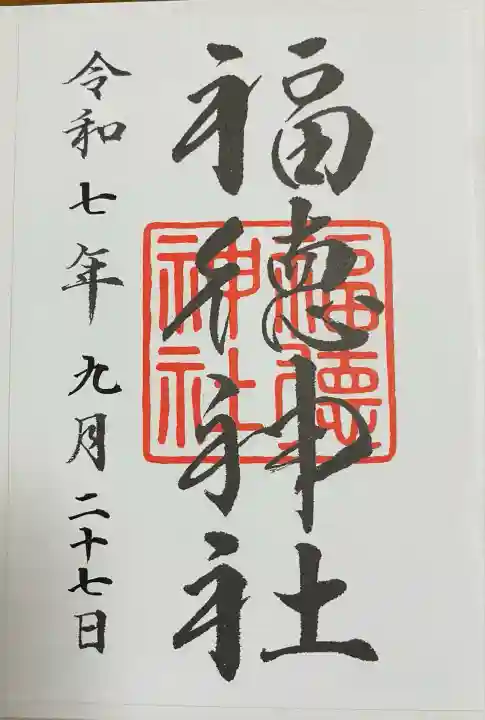 福徳神社
福徳
神社
令和七年九月二十七日